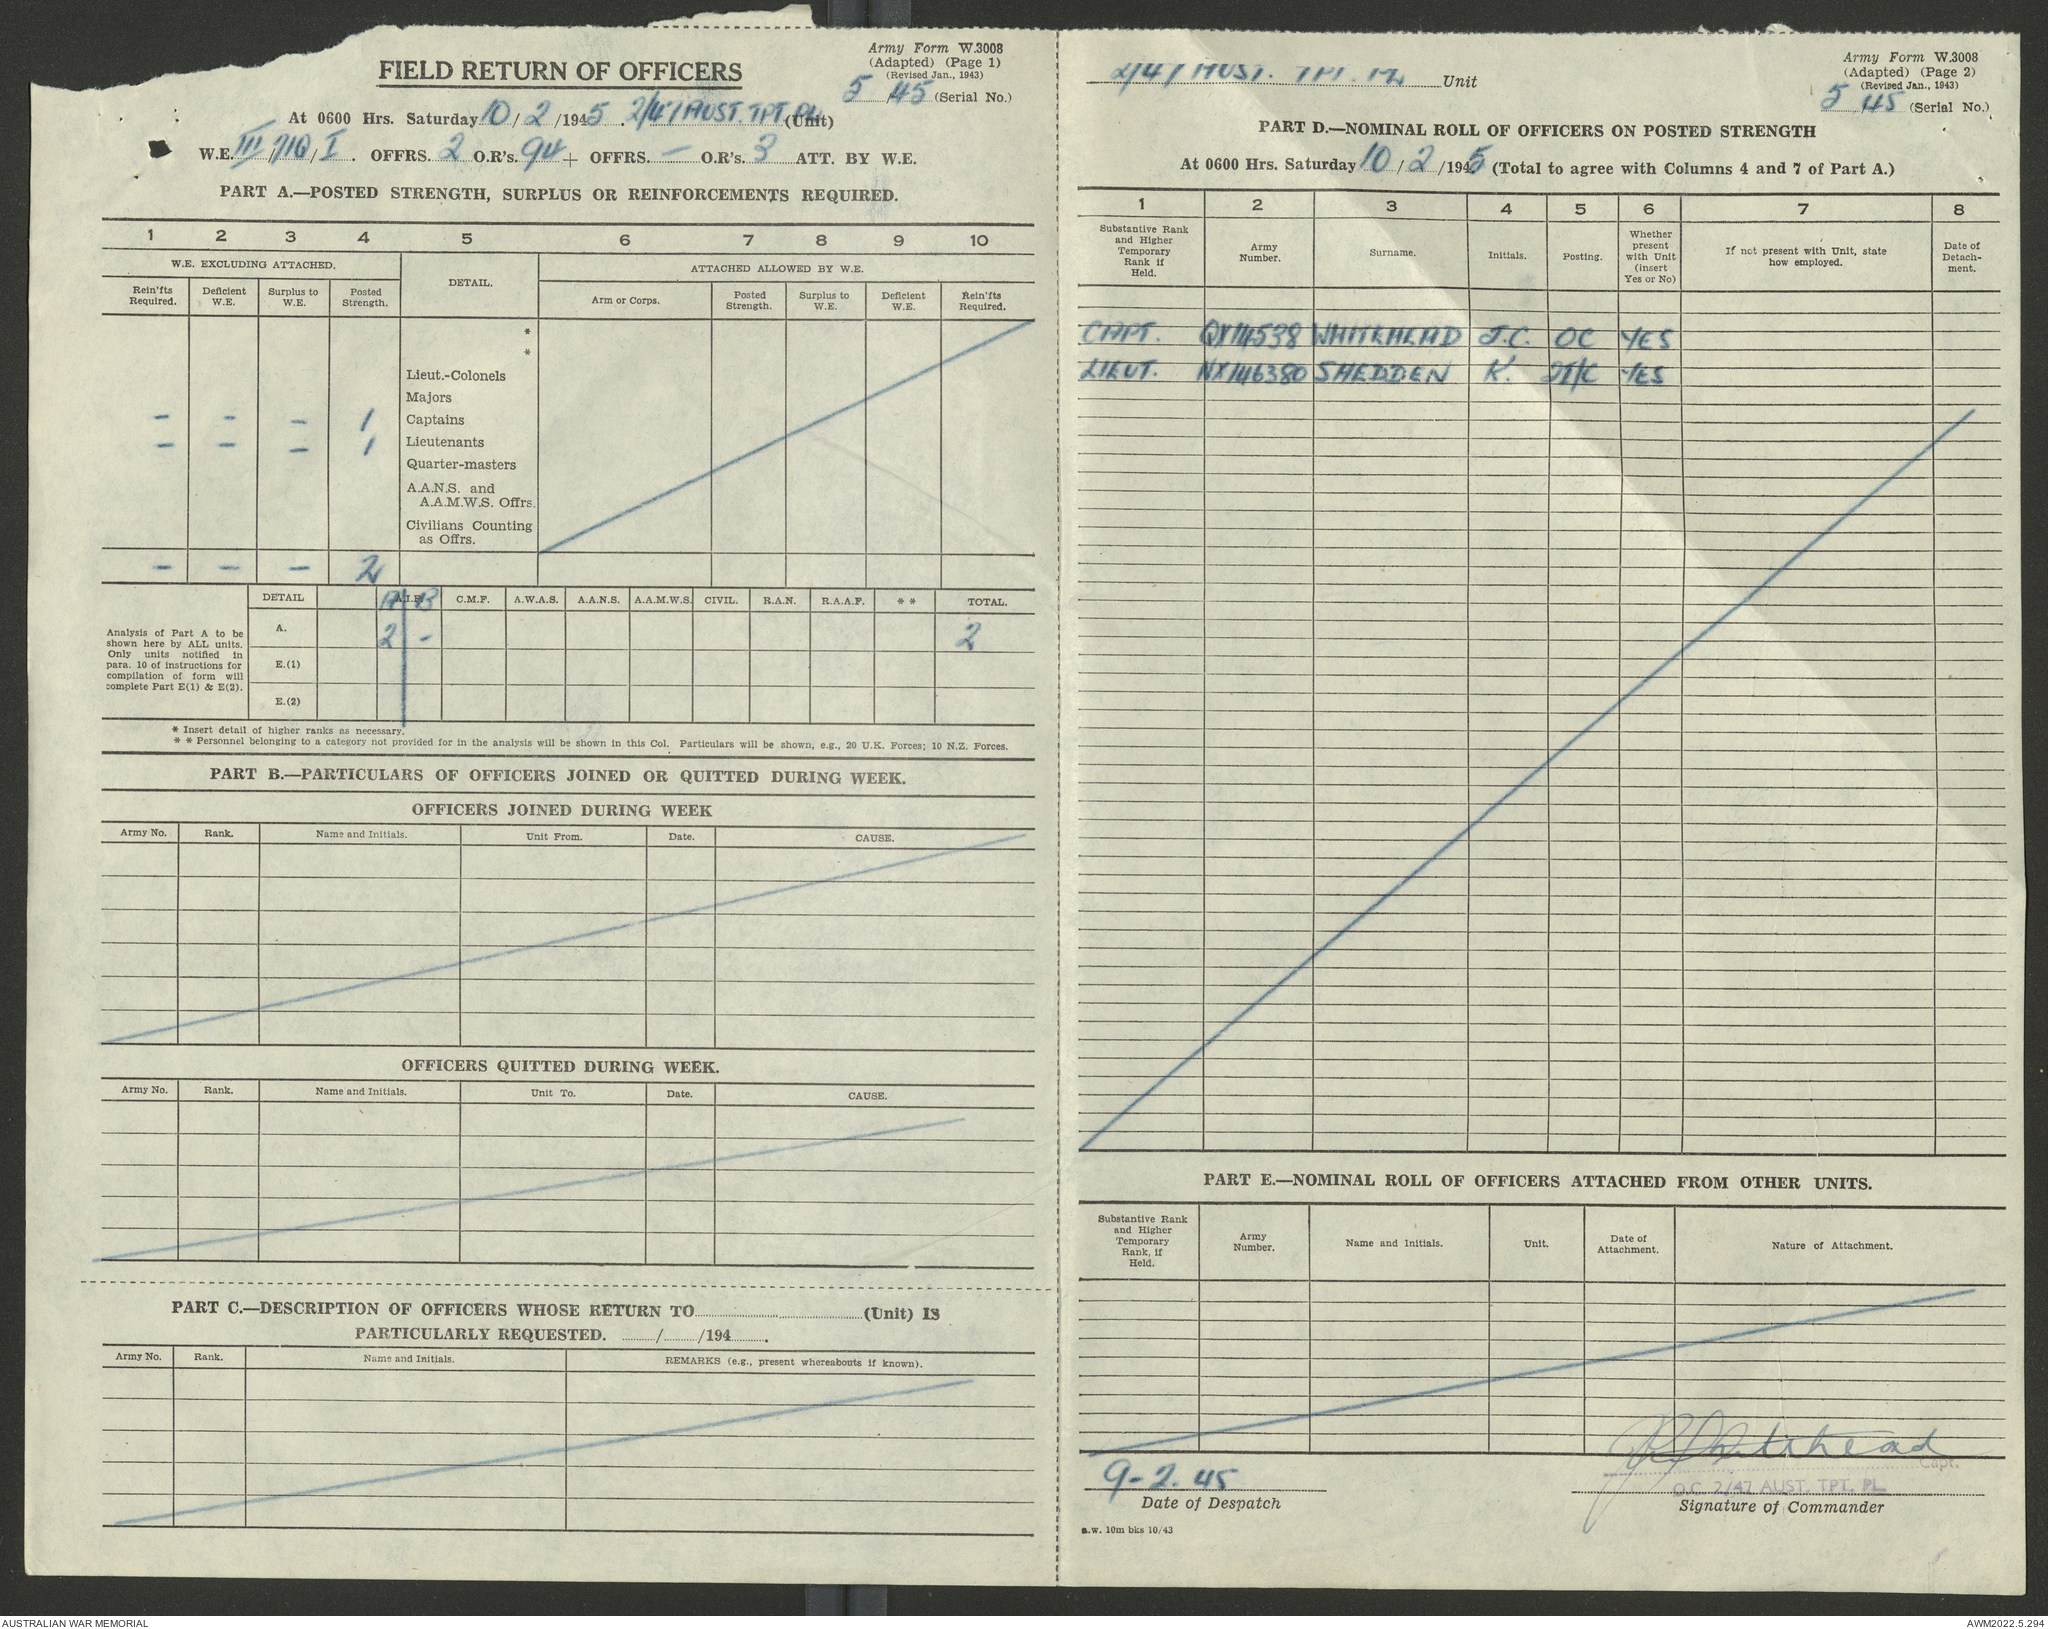 Army Form W.3008
(Adapted) (Page 1)
(Revised Jan., 1943)
5 45 (Serial No.)
FIELD RETURN OF OFFICERS
At 0600 Hrs. Saturday 10/2/1945. 2/47 AUST. TPT. PL. (Unit)
W.E. III/710/I. OFFRS. 2 O.R's. 94 + OFFRS. — O.R's. 3 ATT. BY W.E.
PART A.—POSTED STRENGTH, SURPLUS OR REINFORCEMENTS REQUIRED.
1 2 3 4 5 6 7 8 9 10
W.E. EXCLUDING ATTACHED. DETAIL. ATTACHED ALLOWED BY W.E.
Rein'fts Required. Deficient W.E. Surplus to W.E. Posted Strength. Arm or Corps. Posted Strength. Surplus to W.E. Deficient W.E. Rein'fts Required.
*
*
Lieut.-Colonels
Majors
– – – 1 Captains
– – – 1 Lieutenants
Quarter-masters
A.A.N.S. and
A.A.M.W.S. Offrs.
Civilians Counting
as Offrs.
– – – 2
DETAIL A A.I.F. B C.M.F. A.W.A.S. A.A.N.S. A.A.M.W.S. CIVIL. R.A.N. R.A.A.F. * * TOTAL.
Analysis of Part A to be
shown here by ALL units.
Only units notified in
para. 10 of instructions for
compilation of form will
complete Part E(1) & E(2).
A. 2 – 2
E.(1)
E.(2)
* Insert detail of higher ranks as necessary.
* * Personnel belonging to a category not provided for in the analysis will be shown in this Col. Particulars will be shown, e.g., 20 U.K. Forces; 10 N.Z. Forces.
PART B.—PARTICULARS OF OFFICERS JOINED OR QUITTED DURING WEEK.
OFFICERS JOINED DURING WEEK
Army No. Rank. Name and Initials. Unit From. Date. CAUSE.
OFFICERS QUITTED DURING WEEK.
Army No. Rank. Name and Initials. Unit To. Date. CAUSE.
PART C.—DESCRIPTION OF OFFICERS WHOSE RETURN TO (Unit) IS
PARTICULARLY REQUESTED. / /194 .
Army No. Rank. Name and Initials. REMARKS (e.g., present whereabouts if known).
2/47 AUST. TPT. PL Unit
Army Form W.3008
(Adapted) (Page 2)
(Revised Jan., 1943)
5 45 (Serial No.)
PART D.—NOMINAL ROLL OF OFFICERS ON POSTED STRENGTH
At 0600 Hrs. Saturday 10/2/1945 (Total to agree with Columns 4 and 7 of Part A.)
1 2 3 4 5 6 7 8
Substantive Rank and Higher Temporary Rank if Held. Army Number. Surname. Initials. Posting. Whether present with Unit (insert Yes or No) If not present with Unit, state how employed. Date of Detach-ment.
CAPT. QX14538 WHITEHEAD J.C. OC YES
LIEUT. NX146380 SHEDDEN K. 2I/C YES
PART E.—NOMINAL ROLL OF OFFICERS ATTACHED FROM OTHER UNITS.
Substantive Rank and Higher Temporary Rank, if Held. Army Number. Name and Initials. Unit. Date of Attachment. Nature of Attachment.
9-2-45
Date of Despatch
JCWhitehead
Capt.
O.C. 2/47 AUST. TPT. PL.
Signature of Commander
a.w. 10m bks 10/43
AUSTRALIAN WAR MEMORIAL
AWM2022.5.294